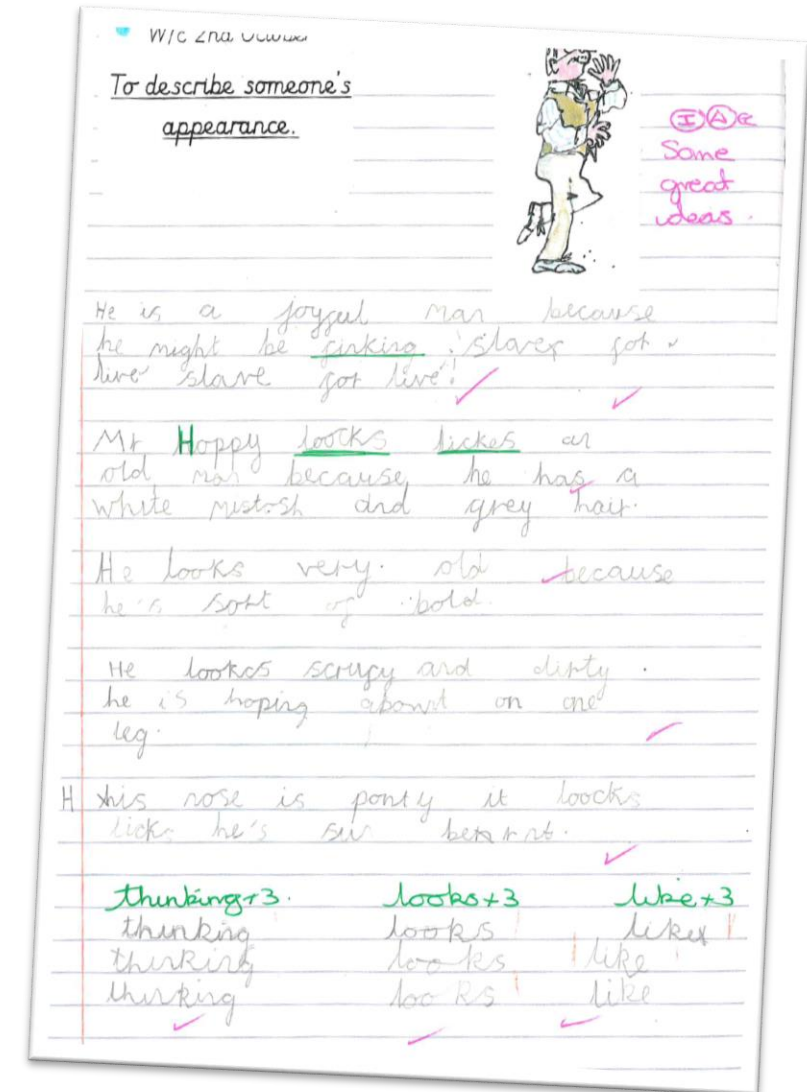 W/C 2nd October
To describe someone's
appearance.
I A G
Some
great
ideas.
He is a joyful man because
he might be finking 'slaves got
live slave got live'!
Mr Hoppy loocks lickes an
old man because he has a
white mustosh and grey hair.
He looks very. old because
he's sort of bold.
He lookes scrufy and dirty.
he is hoping abownt on one
leg.
H this nose is ponty it loocks
licks he's sun
thinking+3. looks+3 like+3
thinking looks like
thinking looks like
thinking looks like